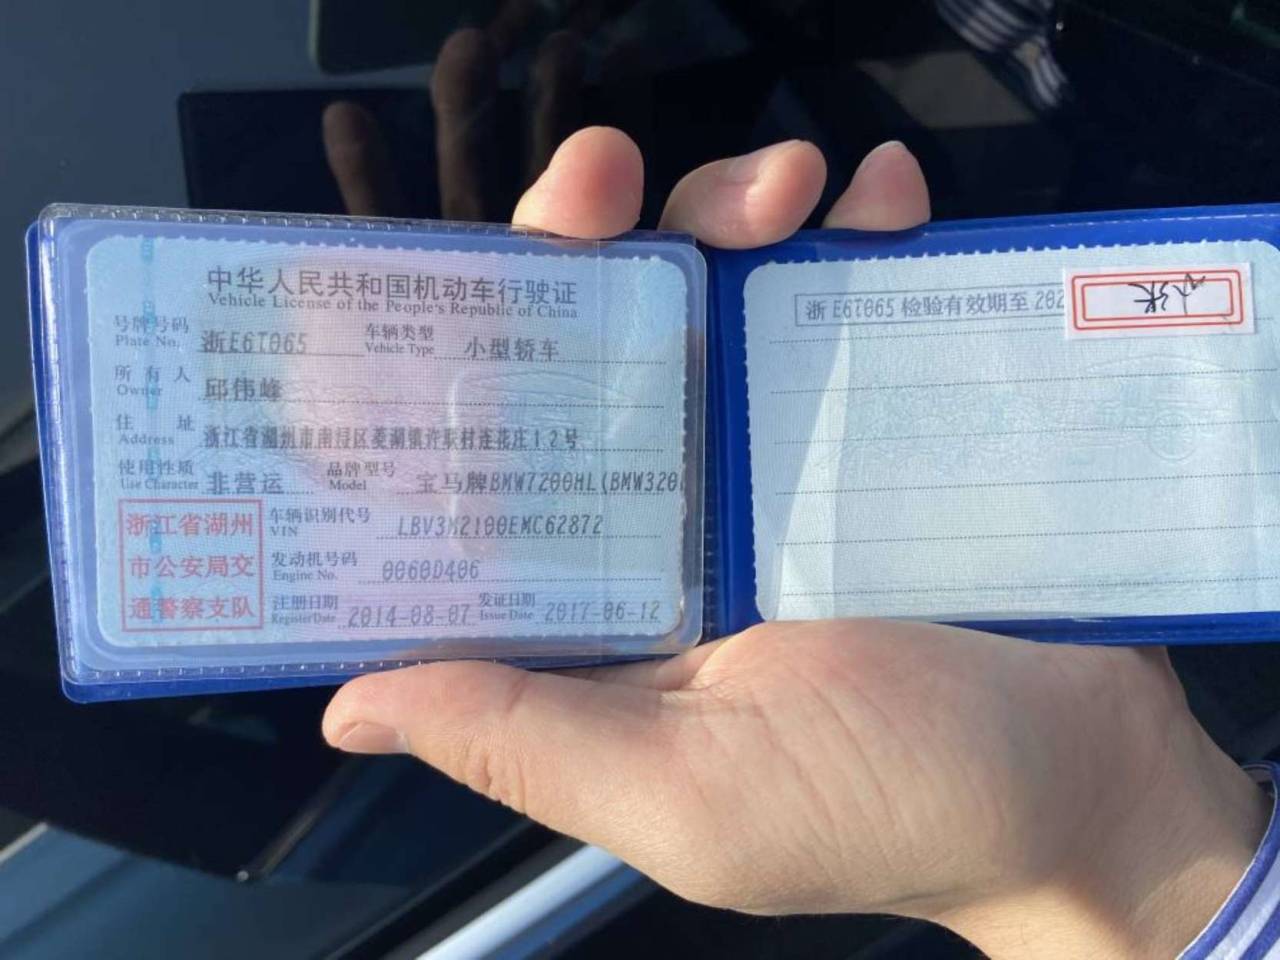 中华人民共和国机动车行驶证
Vehicle License of the People's Republic of China
号牌号码 浙E6T065 车辆类型 小型轿车
Plate No. Vehicle Type
所有人 邱伟峰
Owner
住址 浙江省湖州市南浔区菱湖镇许联村连花庄12号
Address
使用性质 非营运 品牌型号 宝马牌BMW7200HL(BMW320
Use Character Model
浙江省湖州
市公安局交
通警察支队
车辆识别代号 LBV3M2100EMC62872
VIN
发动机号码 0060D406
Engine No.
注册日期 2014-08-07 发证日期 2017-06-12
Register Date Issue Date
浙E6T065 检验有效期至 202